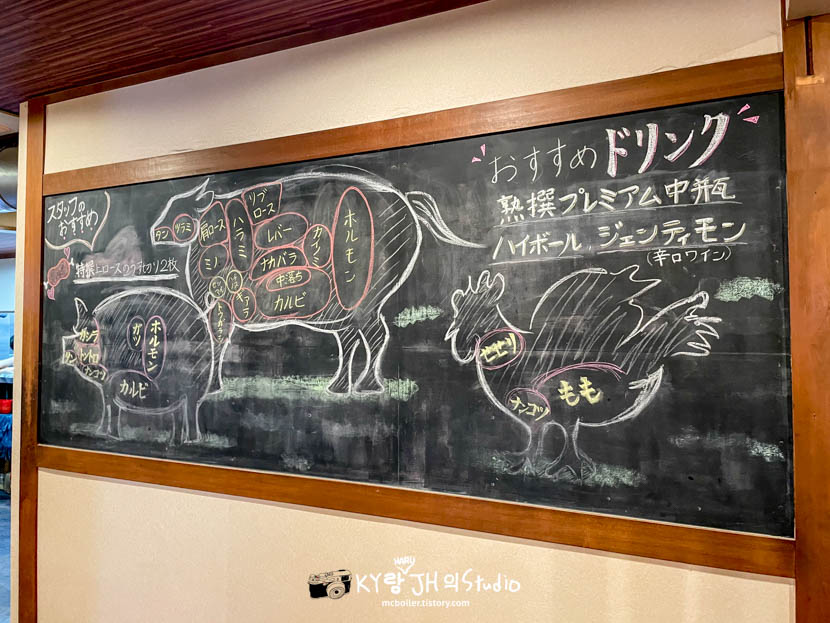 スタッフの
おすすめ
特撰上ロースのうす切り2枚
おすすめドリンク
熟撰プレミアム中瓶
ハイボール、ジェンティモン
(辛口ワイン)
タン
ツラミ
肩ロース
ハラミ
リブ
ロース
レバー
カイノミ
ホルモン
ミノ
ナカバラ
中落ち
カルビ
ギアラ
トウガラシ
カシラ
タン
トントロ
ナンコツ
ガツ
ホルモン
カルビ
セセリ
ナンコツ
もも
HARU
KY랑JH의Studio
mcboiler.tistory.com